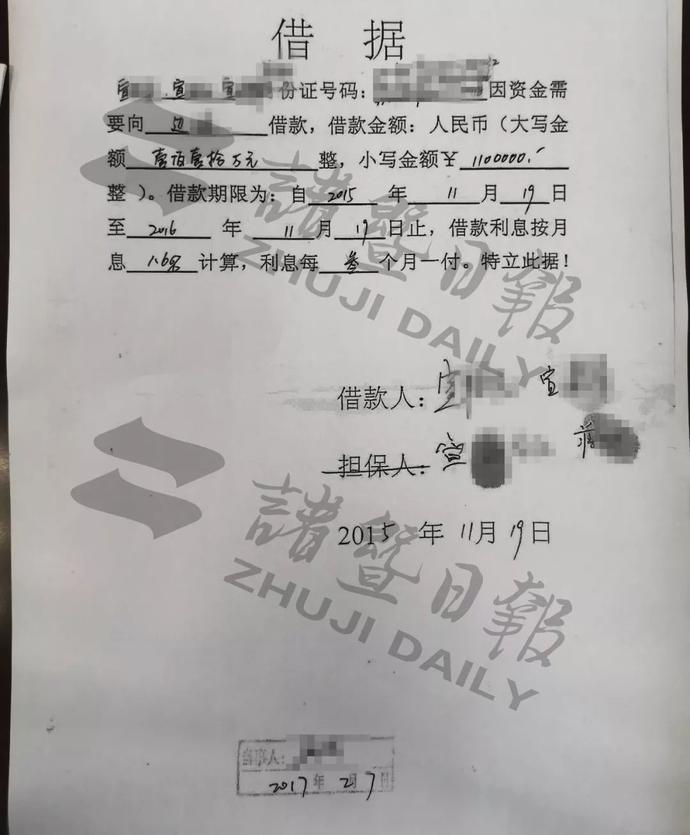 借 据
宣 、宣 宣 份证号码： 因资金需
要向 边 借款，借款金额：人民币（大写金
额 壹佰壹拾万元 整，小写金额￥ 1100000.-
整）。借款期限为：自 2015 年 11 月 19 日
至 2016 年 11 月 19 日止，借款利息按月
息 1.6% 计算，利息每 叁 个月一付。特立此据！
借款人： 宣 宣
担保人： 宣 蒋
2015 年 11月 19日
諸暨日報
ZHUJI DAILY
諸暨日報
ZHUJI DAILY
当事人：
2017年 2月 7日